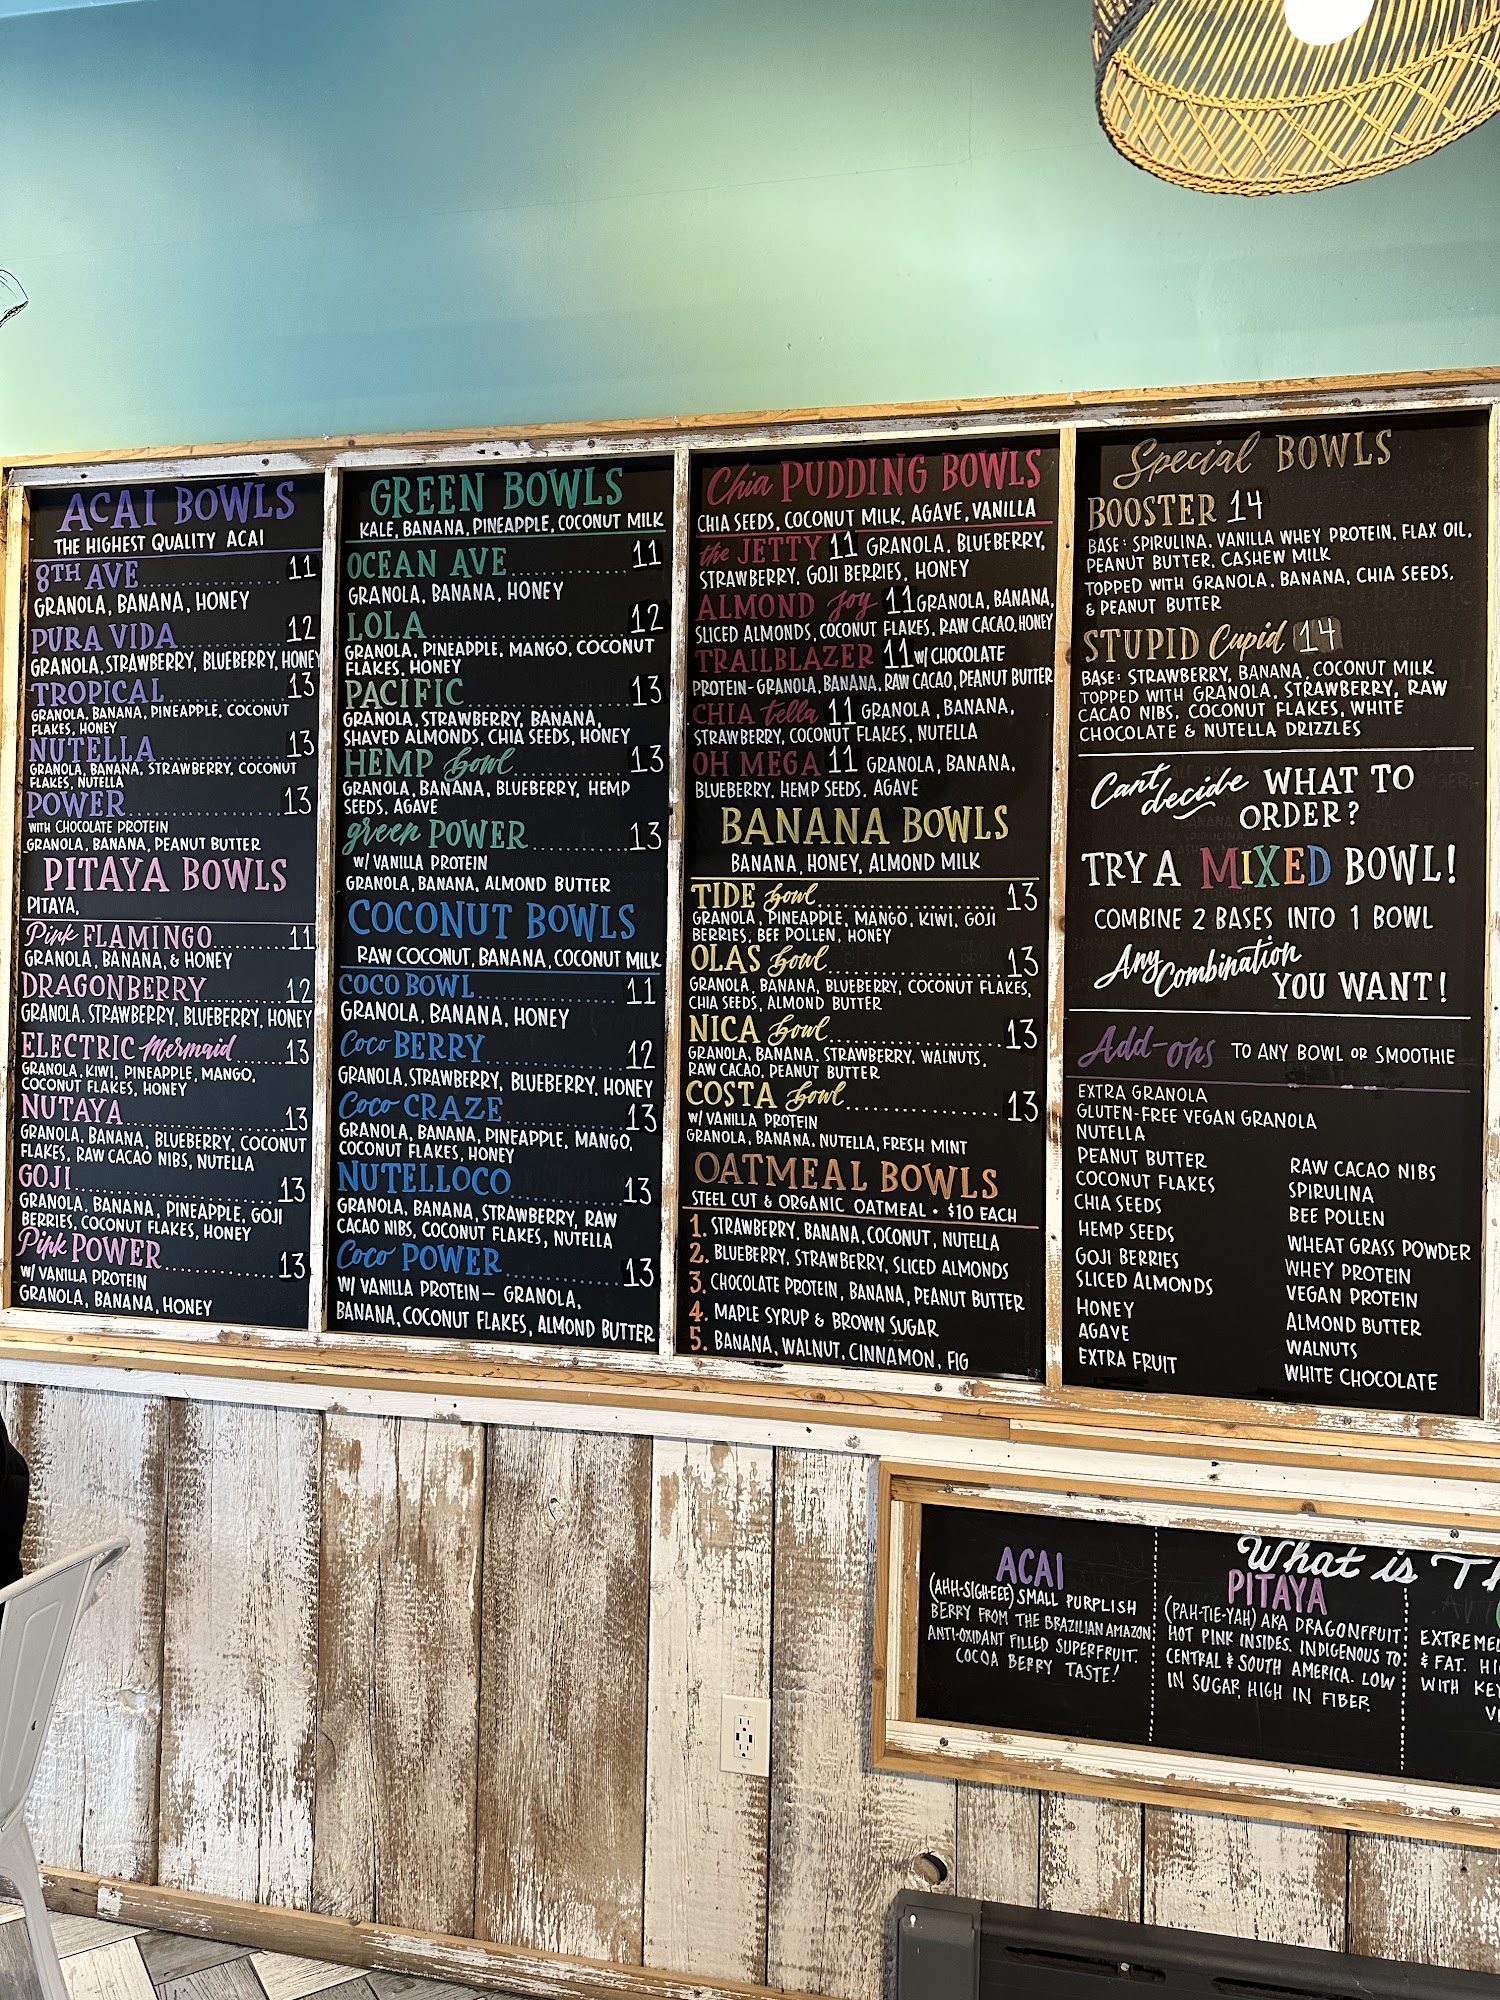 ACAI BOWLS
THE HIGHEST QUALITY ACAI
8TH AVE................. 11
GRANOLA, BANANA, HONEY
PURA VIDA.............. 12
GRANOLA, STRAWBERRY, BLUEBERRY, HONEY
TROPICAL............... 13
GRANOLA, BANANA, PINEAPPLE, COCONUT
FLAKES, HONEY
NUTELLA................ 13
GRANOLA, BANANA, STRAWBERRY, COCONUT
FLAKES, NUTELLA
POWER.................. 13
WITH CHOCOLATE PROTEIN
GRANOLA, BANANA, PEANUT BUTTER
PITAYA BOWLS
PITAYA,
Pink FLAMINGO......... 11
GRANOLA, BANANA, & HONEY
DRAGONBERRY.......... 12
GRANOLA, STRAWBERRY, BLUEBERRY, HONEY
ELECTRIC Mermaid...... 13
GRANOLA, KIWI, PINEAPPLE, MANGO,
COCONUT FLAKES, HONEY
NUTAYA................. 13
GRANOLA, BANANA, BLUEBERRY, COCONUT
FLAKES, RAW CACAO NIBS, NUTELLA
GOJI.................... 13
GRANOLA, BANANA, PINEAPPLE, GOJI
BERRIES, COCONUT FLAKES, HONEY
Pink POWER............. 13
W/ VANILLA PROTEIN
GRANOLA, BANANA, HONEY
GREEN BOWLS
KALE, BANANA, PINEAPPLE, COCONUT MILK
OCEAN AVE.............. 11
GRANOLA, BANANA, HONEY
LOLA.................... 12
GRANOLA, PINEAPPLE, MANGO, COCONUT
FLAKES, HONEY
PACIFIC................. 13
GRANOLA, STRAWBERRY, BANANA,
SHAVED ALMONDS, CHIA SEEDS, HONEY
HEMP bowl.............. 13
GRANOLA, BANANA, BLUEBERRY, HEMP
SEEDS, AGAVE
green POWER............ 13
W/ VANILLA PROTEIN
GRANOLA, BANANA, ALMOND BUTTER
COCONUT BOWLS
RAW COCONUT, BANANA, COCONUT MILK
COCO BOWL.............. 11
GRANOLA, BANANA, HONEY
Coco BERRY............. 12
GRANOLA, STRAWBERRY, BLUEBERRY, HONEY
Coco CRAZE............. 13
GRANOLA, BANANA, PINEAPPLE, MANGO,
COCONUT FLAKES, HONEY
NUTELLOCO.............. 13
GRANOLA, BANANA, STRAWBERRY, RAW
CACAO NIBS, COCONUT FLAKES, NUTELLA
Coco POWER............. 13
W/ VANILLA PROTEIN – GRANOLA,
BANANA, COCONUT FLAKES, ALMOND BUTTER
Chia PUDDING BOWLS
CHIA SEEDS, COCONUT MILK, AGAVE, VANILLA
the JETTY 11 GRANOLA, BLUEBERRY,
STRAWBERRY, GOJI BERRIES, HONEY
ALMOND Joy 11 GRANOLA, BANANA,
SLICED ALMONDS, COCONUT FLAKES, RAW CACAO, HONEY
TRAILBLAZER 11 W/ CHOCOLATE
PROTEIN - GRANOLA, BANANA, RAW CACAO, PEANUT BUTTER
CHIA tella 11 GRANOLA, BANANA,
STRAWBERRY, COCONUT FLAKES, NUTELLA
OH MEGA 11 GRANOLA, BANANA,
BLUEBERRY, HEMP SEEDS, AGAVE
BANANA BOWLS
BANANA, HONEY, ALMOND MILK
TIDE bowl............... 13
GRANOLA, PINEAPPLE, MANGO, KIWI, GOJI
BERRIES, BEE POLLEN, HONEY
OLAS bowl............... 13
GRANOLA, BANANA, BLUEBERRY, COCONUT FLAKES,
CHIA SEEDS, ALMOND BUTTER
NICA bowl............... 13
GRANOLA, BANANA, STRAWBERRY, WALNUTS,
RAW CACAO, PEANUT BUTTER
COSTA bowl.............. 13
W/ VANILLA PROTEIN
GRANOLA, BANANA, NUTELLA, FRESH MINT
OATMEAL BOWLS
STEEL CUT & ORGANIC OATMEAL • $10 EACH
1. STRAWBERRY, BANANA, COCONUT, NUTELLA
2. BLUEBERRY, STRAWBERRY, SLICED ALMONDS
3. CHOCOLATE PROTEIN, BANANA, PEANUT BUTTER
4. MAPLE SYRUP & BROWN SUGAR
5. BANANA, WALNUT, CINNAMON, FIG
Special BOWLS
BOOSTER 14
BASE: SPIRULINA, VANILLA WHEY PROTEIN, FLAX OIL,
PEANUT BUTTER, CASHEW MILK
TOPPED WITH GRANOLA, BANANA, CHIA SEEDS,
& PEANUT BUTTER
STUPID Cupid 14
BASE: STRAWBERRY, BANANA, COCONUT MILK
TOPPED WITH GRANOLA, STRAWBERRY, RAW
CACAO NIBS, COCONUT FLAKES, WHITE
CHOCOLATE & NUTELLA DRIZZLES
Can't decide WHAT TO
ORDER?
TRY A MIXED BOWL!
COMBINE 2 BASES INTO 1 BOWL
Any Combination
YOU WANT!
Add-ons TO ANY BOWL OR SMOOTHIE
EXTRA GRANOLA
GLUTEN-FREE VEGAN GRANOLA
NUTELLA
PEANUT BUTTER
COCONUT FLAKES
CHIA SEEDS
HEMP SEEDS
GOJI BERRIES
SLICED ALMONDS
HONEY
AGAVE
EXTRA FRUIT
RAW CACAO NIBS
SPIRULINA
BEE POLLEN
WHEAT GRASS POWDER
WHEY PROTEIN
VEGAN PROTEIN
ALMOND BUTTER
WALNUTS
WHITE CHOCOLATE
What is TH
ACAI
(AHH-SIGH-EEE) SMALL PURPLISH
BERRY FROM THE BRAZILIAN AMAZON
ANTI-OXIDANT FILLED SUPERFRUIT.
COCOA BERRY TASTE!
PITAYA
(PAH-TIE-YAH) AKA DRAGONFRUIT
HOT PINK INSIDES. INDIGENOUS TO
CENTRAL & SOUTH AMERICA. LOW
IN SUGAR, HIGH IN FIBER.
& FAT.
WITH